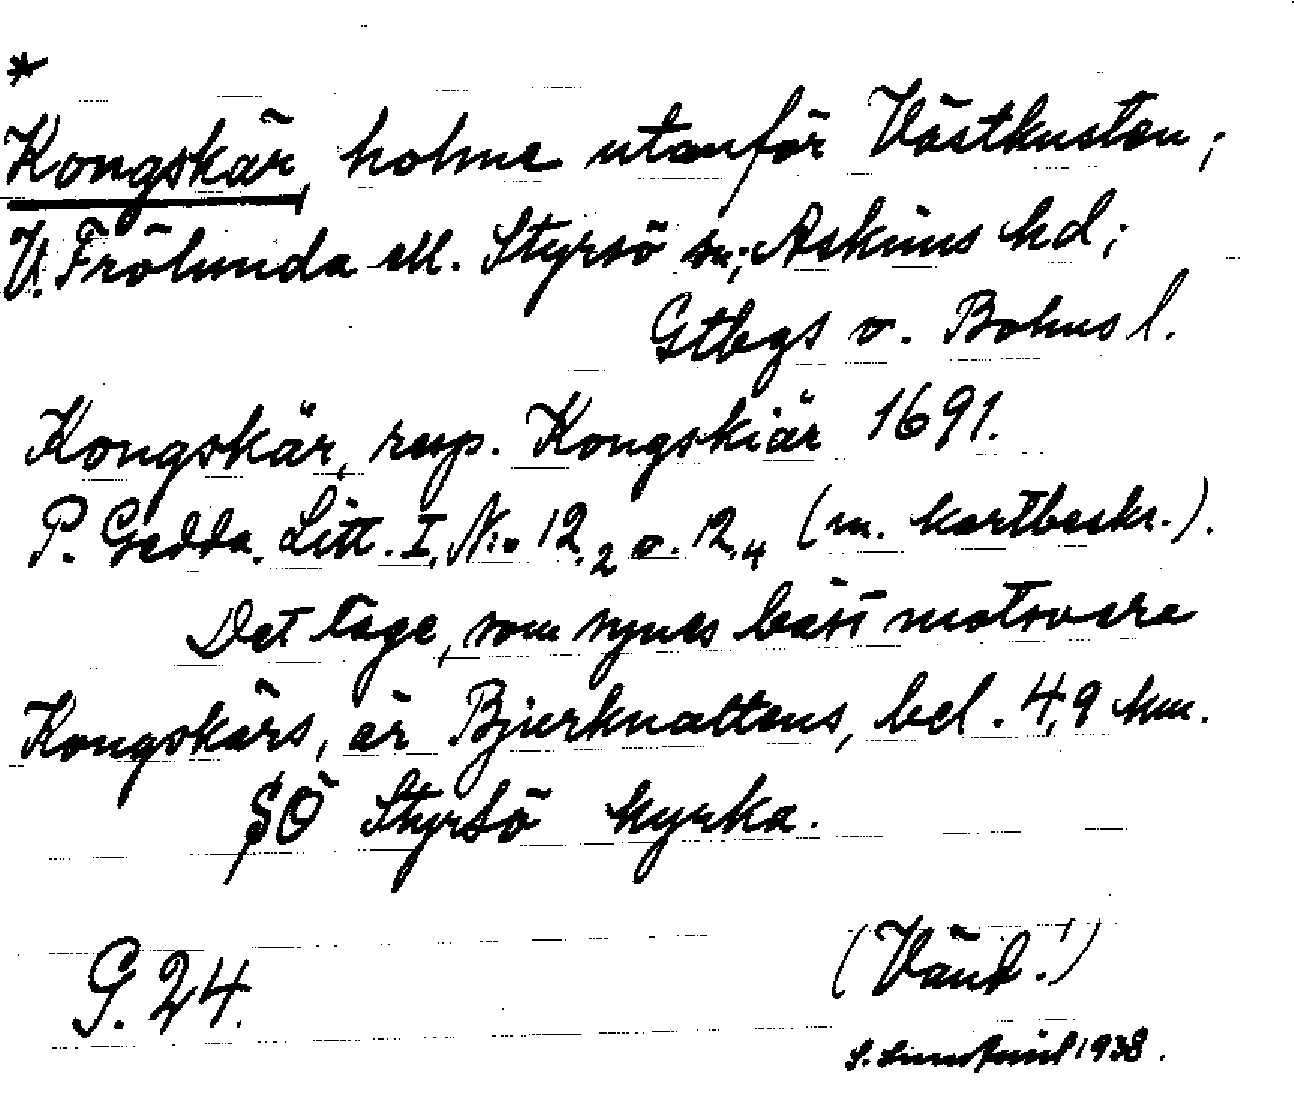 *
Kongskär, holme utanför Västkusten;
V. Frölunda ell. Styrsö sn; Askims hd;
Gtbgs o. Bohus l.
Kongskär, resp. Kongskiär 1691.
P. Gedda. Litt. I, No 12.2 o. 12.4 (m. kartbeskr.).
Det läge, som synes bäst motsvara
Kongskärs, är Bjerknattens, bel. 4,9 km.
SÖ Styrsö kyrka.
G. 24.
(Vänd!)
S. 1938.